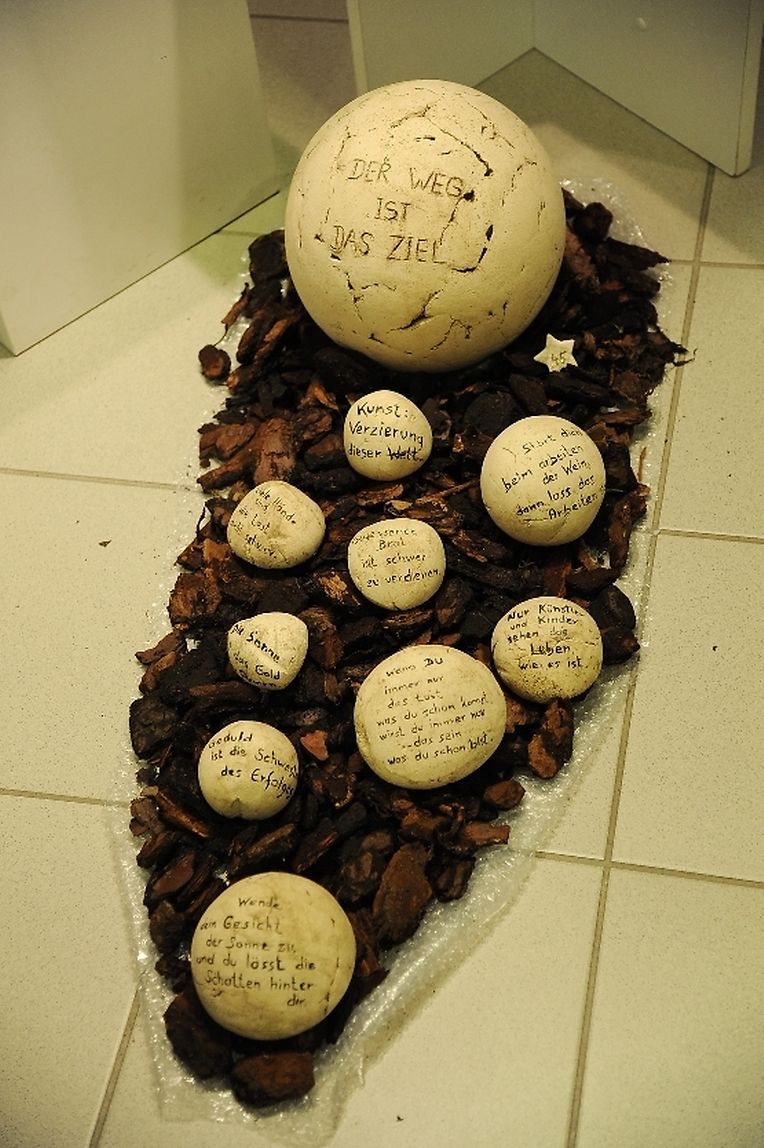 DER WEG
IST
DAS ZIEL
45
Kunst:
Verzierung
dieser Welt.
Stört dich
beim arbeiten
der Wein,
dann lass das
Arbeiten
viele Hände
Last
Brot
ist schwer
zu verdienen.
Nur Künstler
und Kinder
sehen das
Leben
wie es ist.
Die Sonne
das Gold
wenn Du
immer nur
das tust
was du schon kannst
wirst du immer nur
das sein
was du schon bist.
Geduld
ist die Schwester
des Erfolges
Wende
dein Gesicht
der Sonne zu,
und du lässt die
Schatten hinter
dir.